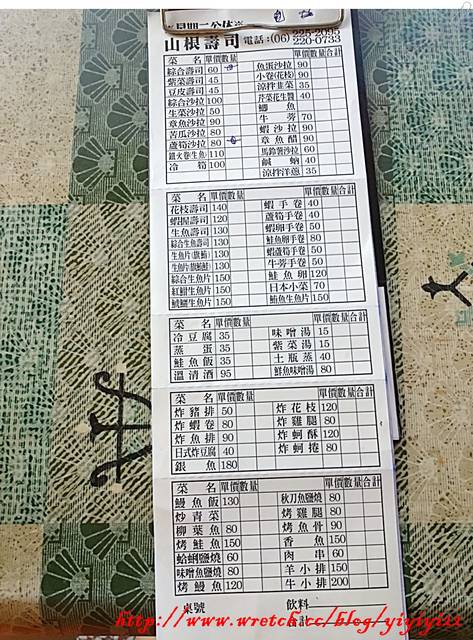 山根壽司 電話:(06) 225-2095
220-0733
菜名 單價 數量 單價 數量 合計
綜合壽司 60 魚蛋沙拉 90
紫菜壽司 45 小卷(花枝) 90
豆皮壽司 45 涼拌韭菜 35
綜合沙拉 100 芹菜花生醬 40
生菜沙拉 50
章魚沙拉 90 牛蒡 70
苦瓜沙拉 80 蝦沙拉 90
蘆筍沙拉 80 章魚醋 90
鐵火卷生魚 110 馬鈴薯沙拉 60
冷筍 100 鹹蚋 40
涼拌洋蔥 35
菜名 單價 數量 單價 數量 合計
花枝壽司 140 蝦手卷 40
蝦握壽司 120 蘆筍手卷 40
生魚壽司 130 蝦卵手卷 50
綜合生魚壽司 130 鮭魚卵手卷 80
生魚片(旗鮪) 130 蝦蘆筍手卷 50
生魚片(旗鮪鮭) 130 牛蒡手卷 50
綜合生魚片 150 鮭魚卵 120
紅魽生魚片 150 日本小菜 70
生魚片 150 鮪魚生魚片 150
菜名 單價 數量 單價 數量 合計
冷豆腐 35 味噌湯 15
蒸蛋 35 紫菜湯 15
鮭魚飯 35 土瓶蒸 40
溫清酒 95 鮮魚味噌湯 80
菜名 單價 數量 單價 數量 合計
炸豬排 50 炸花枝 120
炸蝦卷 80 炸雞腿 80
炸魚排 90 炸蚵酥 120
日式炸豆腐 40 炸蚵捲 80
銀魚 180
菜名 單價 數量 單價 數量 合計
鰻魚飯 130 秋刀魚鹽燒 80
炒青菜 烤雞腿 80
柳葉魚 80 烤魚骨 90
烤鮭魚 150 香魚 150
蛤蜊鹽燒 60 肉串 60
味噌魚鹽燒 80 羊小排 150
烤鰻魚 120 牛小排 200
桌號 飲料
合計
http://www.wretch.cc/blog/yiyiyiii